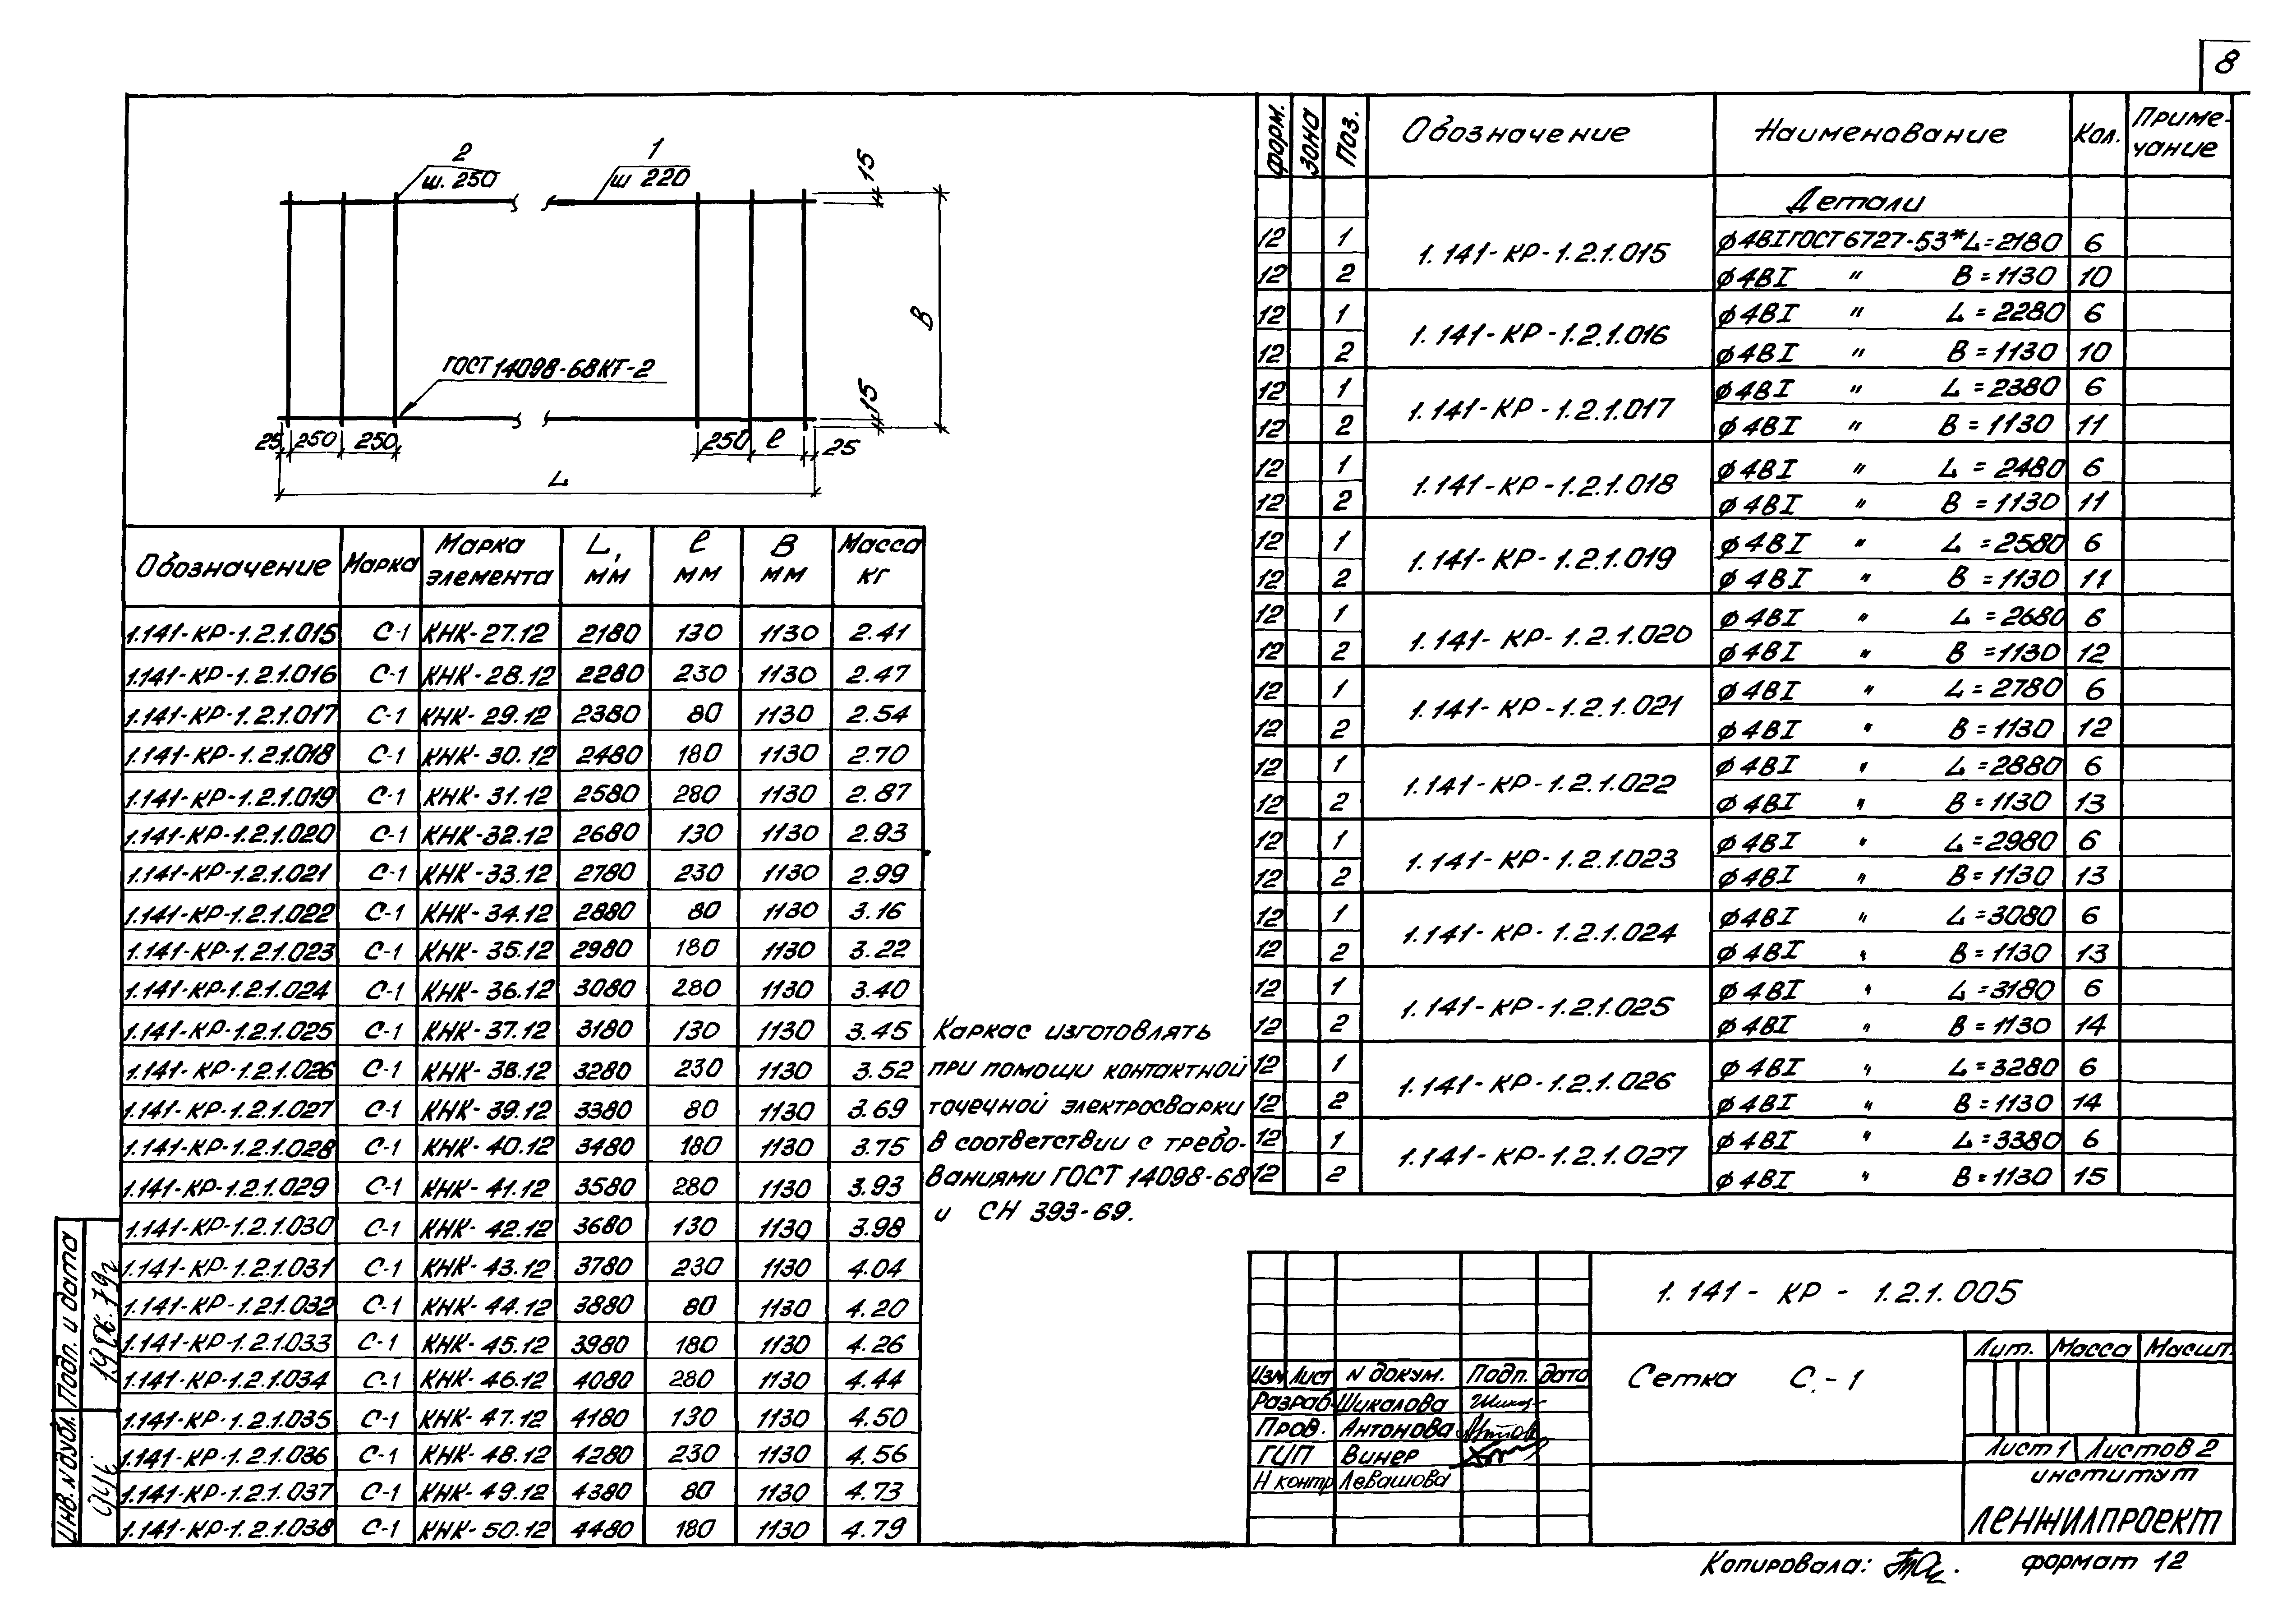 8
2
ш. 250
1
ш 220
15
В
ГОСТ 14098-68 КТ-2
15
25 250 250 250 ℓ 25
L
Обозначение Марка Марка элемента L, мм ℓ мм В мм Масса кг
1.141-КР-1.2.1.015 С-1 КНК-27.12 2180 130 1130 2.41
1.141-КР-1.2.1.016 С-1 КНК-28.12 2280 230 1130 2.47
1.141-КР-1.2.1.017 С-1 КНК-29.12 2380 80 1130 2.54
1.141-КР-1.2.1.018 С-1 КНК-30.12 2480 180 1130 2.70
1.141-КР-1.2.1.019 С-1 КНК-31.12 2580 280 1130 2.87
1.141-КР-1.2.1.020 С-1 КНК-32.12 2680 130 1130 2.93
1.141-КР-1.2.1.021 С-1 КНК-33.12 2780 230 1130 2.99
1.141-КР-1.2.1.022 С-1 КНК-34.12 2880 80 1130 3.16
1.141-КР-1.2.1.023 С-1 КНК-35.12 2980 180 1130 3.22
1.141-КР-1.2.1.024 С-1 КНК-36.12 3080 280 1130 3.40
1.141-КР-1.2.1.025 С-1 КНК-37.12 3180 130 1130 3.45
1.141-КР-1.2.1.026 С-1 КНК-38.12 3280 230 1130 3.52
1.141-КР-1.2.1.027 С-1 КНК-39.12 3380 80 1130 3.69
1.141-КР-1.2.1.028 С-1 КНК-40.12 3480 180 1130 3.75
1.141-КР-1.2.1.029 С-1 КНК-41.12 3580 280 1130 3.93
1.141-КР-1.2.1.030 С-1 КНК-42.12 3680 130 1130 3.98
1.141-КР-1.2.1.031 С-1 КНК-43.12 3780 230 1130 4.04
1.141-КР-1.2.1.032 С-1 КНК-44.12 3880 80 1130 4.20
1.141-КР-1.2.1.033 С-1 КНК-45.12 3980 180 1130 4.26
1.141-КР-1.2.1.034 С-1 КНК-46.12 4080 280 1130 4.44
1.141-КР-1.2.1.035 С-1 КНК-47.12 4180 130 1130 4.50
1.141-КР-1.2.1.036 С-1 КНК-48.12 4280 230 1130 4.56
1.141-КР-1.2.1.037 С-1 КНК-49.12 4380 80 1130 4.73
1.141-КР-1.2.1.038 С-1 КНК-50.12 4480 180 1130 4.79
Каркас изготовлять
при помощи контактной
точечной электросварки
в соответствии с требо-
ваниями ГОСТ 14098-68
и СН 393-69.
Форм. Зона Поз. Обозначение Наименование Кол. Приме-
чание
Детали
1.141-КР-1.2.1.015
12 1 ф4ВI ГОСТ 6727-53* L=2180 6
12 2 ф4ВI " В=1130 10
1.141-КР-1.2.1.016
12 1 ф4ВI " L=2280 6
12 2 ф4ВI " В=1130 10
1.141-КР-1.2.1.017
12 1 ф4ВI " L=2380 6
12 2 ф4ВI " В=1130 11
1.141-КР-1.2.1.018
12 1 ф4ВI " L=2480 6
12 2 ф4ВI " В=1130 11
1.141-КР-1.2.1.019
12 1 ф4ВI " L=2580 6
12 2 ф4ВI " В=1130 11
1.141-КР-1.2.1.020
12 1 ф4ВI " L=2680 6
12 2 ф4ВI " В=1130 12
1.141-КР-1.2.1.021
12 1 ф4ВI " L=2780 6
12 2 ф4ВI " В=1130 12
1.141-КР-1.2.1.022
12 1 ф4ВI " L=2880 6
12 2 ф4ВI " В=1130 13
1.141-КР-1.2.1.023
12 1 ф4ВI " L=2980 6
12 2 ф4ВI " В=1130 13
1.141-КР-1.2.1.024
12 1 ф4ВI " L=3080 6
12 2 ф4ВI " В=1130 13
1.141-КР-1.2.1.025
12 1 ф4ВI " L=3180 6
12 2 ф4ВI " В=1130 14
1.141-КР-1.2.1.026
12 1 ф4ВI " L=3280 6
12 2 ф4ВI " В=1130 14
1.141-КР-1.2.1.027
12 1 ф4ВI " L=3380 6
12 2 ф4ВI " В=1130 15
1.141-КР-1.2.1.005
Изм Лист N докум. Подп. дата
Разраб. Шикалова
Пров. Антонова
ГИП Винер
Н контр Левашова
Сетка С-1
Лит. Масса Масшт.
Лист 1 Листов 2
институт
ЛЕНЖИЛПРОЕКТ
Копировала:
формат 12
Подп. и дата
Инв. N оубл.